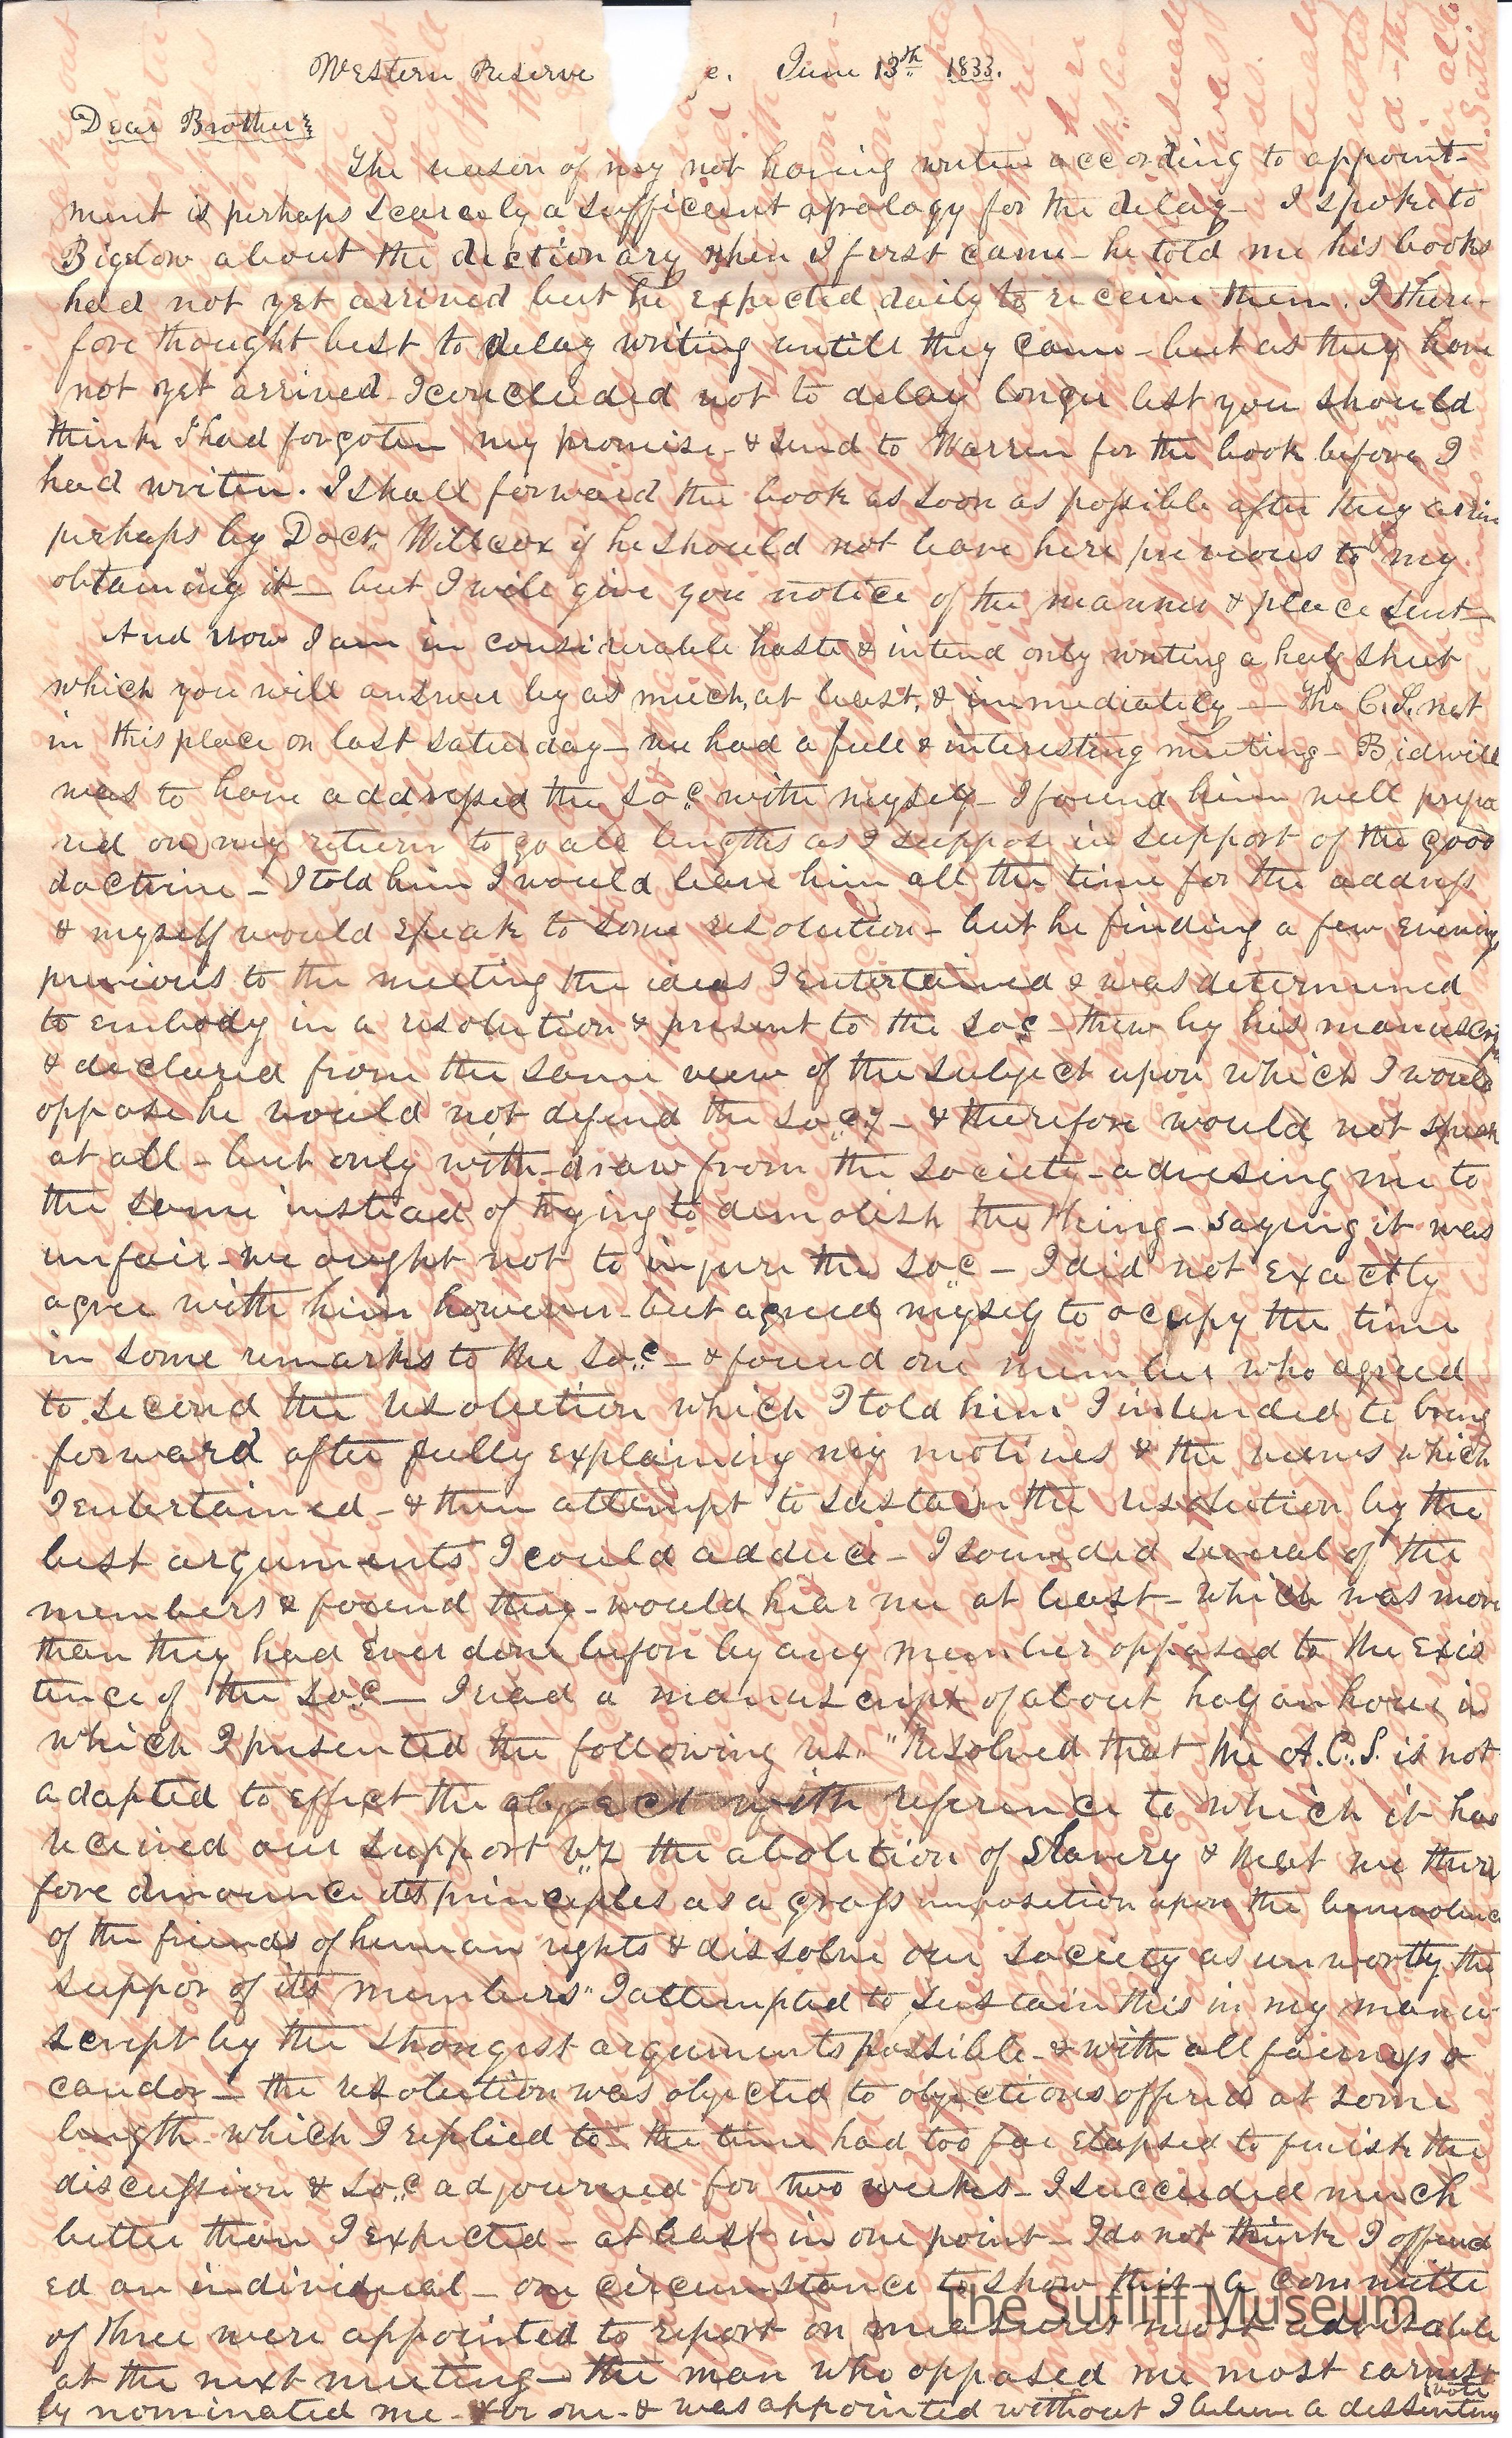 Western Reserve e. June 13th 1833.
Dear Brother
The reason of my not having writen according to appoint-
ment is perhaps scarcely a sufficient apology for the delay - I spoke to
Bigelow about the dictionary when I first came - he told me his books
had not yet arrived but he expected daily to receive them. I there-
fore thought best to delay writing untill they came - but as they have
not yet arrived - I concluded not to delay longer lest you should
think I had forgoten my promise - & send to Warren for the book before I
had writen. I shall forward the book as soon as possible after they arrive
perhaps by Doct. Willcox if he should not leave here previous to my
obtaining it - but I will give you notice of the manner & place sent -
And now I am in considerable haste & intend only writing a half sheet
which you will answer by as much, at least, & immediately - The C.S. met
in this place on last saturday - we had a full & interesting meeting - Bidwill
was to have addressed the Soc. with myself - I found him well prepa
red on my return to go all lengths as I suppose in support of the good
doctrine - I told him I would leave him all the time for the address
& myself would speak to some resolution - but he finding a few evenings
previous to the meeting the ideas I entertained & was determined
to embody in a resolution & present to the Soc. - threw by his manuscript
& declared from the same view of the subject upon which I would
oppose he would not defend the Soc.y - & therefore would not speak
at all - but only with-draw from the society - advising me to
the same instead of trying to demolish the thing - saying it was
unfair - we ought not to injure the Soc. - I did not exactly
agree with him however - but agreed myself to occupy the time
in some remarks to the Soc. - & found one member who agreed
to second the resolution which I told him I intended to bring
forward after fully explaining my motives & the views which
I entertained - & then attempt to sustain the resolution by the
best arguments I could adduce - I sounded several of the
members & found they - would hear me at least - which was more
than they had ever done before by any member opposed to the exis
tence of the Soc. - I read a manuscript of about half an hour in
which I presented the following res. "Resolved that the A.C.S. is not
adapted to effect the object with reference to which it has
received our support viz the abolition of slavery & that we there
fore denounce its principles as a gross imposition upon the benevolence
of the friends of human rights & dissolve our society as unworthy the
suppor of its members" I attempted to sustain this in my manu-
script by the strongest arguments possible - & with all fairness &
candor - the resolution was objected to objections offered at some
length - which I replied to - the time had too far elapsed to finish the
discussion & Soc. adjourned for two weeks - I succeeded much
better than I expected - at least in one point - I do not think I offend
ed an individual - one circumstance to show this - a committe
of three were appointed to report on measures most advisable
at the next meeting - the man who opposed me most earnest
ly nominated me - for one - & was appointed without I believe a dissenting
vote
The Sutliff Museum